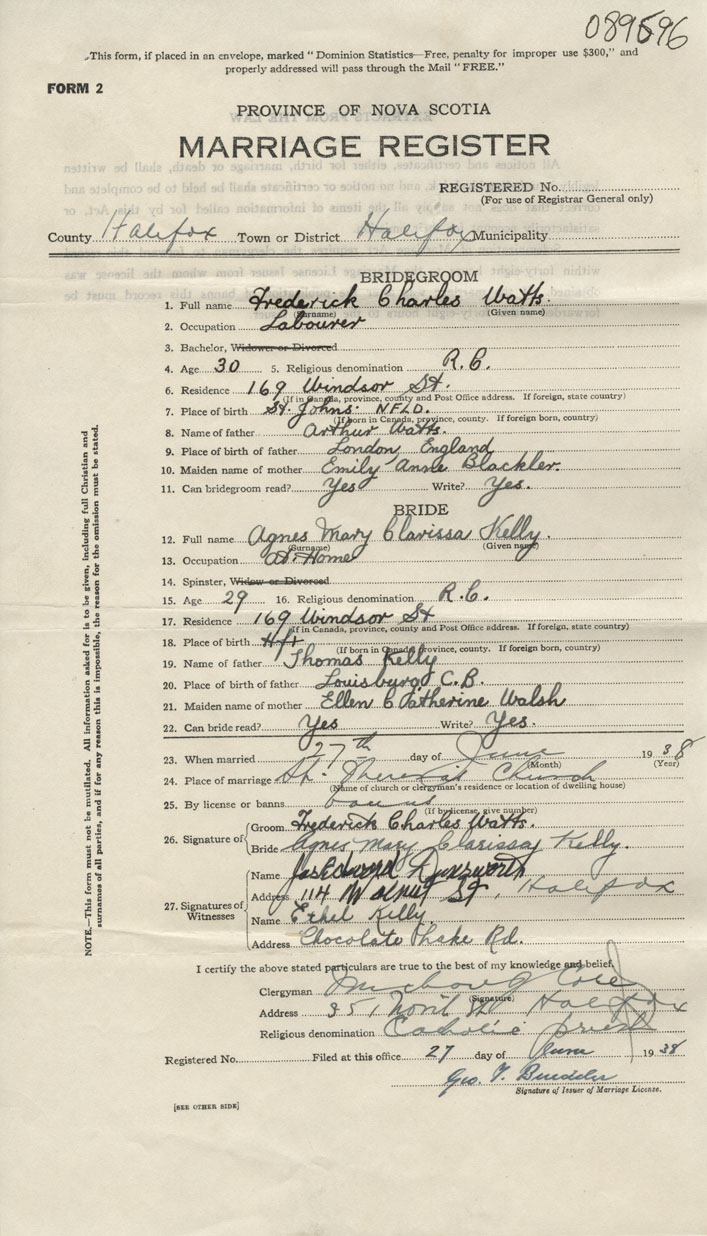 089596
This form, if placed in an envelope, marked "Dominion Statistics—Free, penalty for improper use $300," and
properly addressed will pass through the Mail "FREE."
FORM 2
PROVINCE OF NOVA SCOTIA
MARRIAGE REGISTER
REGISTERED No.
(For use of Registrar General only)
County Halifax Town or District Halifax Municipality
BRIDEGROOM
1. Full name Frederick Charles Watts.
(Surname) (Given name)
2. Occupation Labourer
3. Bachelor, Widower or Divorced
4. Age 30 5. Religious denomination R.C.
6. Residence 169 Windsor St.
(If in Canada, province, county and Post Office address. If foreign, state country)
7. Place of birth St. Johns. NFLD.
(If born in Canada, province, county. If foreign born, country)
8. Name of father Arthur Watts.
9. Place of birth of father London, England
10. Maiden name of mother Emily Anne Blackler.
11. Can bridegroom read? Yes Write? Yes.
BRIDE
12. Full name Agnes Mary Clarissa Kelly.
(Surname) (Given name)
13. Occupation At Home
14. Spinster, Widow or Divorced
15. Age 29 16. Religious denomination R.C.
17. Residence 169 Windsor St
(If in Canada, province, county and Post Office address. If foreign, state country)
18. Place of birth Hfx
(If born in Canada province, county. If foreign born, country)
19. Name of father Thomas Kelly
20. Place of birth of father Louisburg C.B.
21. Maiden name of mother Ellen Catherine Walsh
22. Can bride read? Yes Write? Yes.
23. When married 27th day of June 1938
(Month) (Year)
24. Place of marriage St. Theresa's Church
(Name of church or clergyman's residence or location of dwelling house)
25. By license or banns banns
(If by license, give number)
26. Signature of Groom Frederick Charles Watts.
Bride Agnes Mary Clarissa Kelly.
27. Signatures of Witnesses
Name Jas Edward Dunsworth
Address 114 Walnut St, Halifax
Name Ethel Kelly
Address Chocolate Lake Rd.
I certify the above stated particulars are true to the best of my knowledge and belief.
Clergyman
(Signature)
Address 351 North St Halifax
Religious denomination Catholic priest
Registered No. Filed at this office 27 day of June 1938
Geo.
Signature of Issuer of Marriage License.
[SEE OTHER SIDE]
NOTE.—This form must not be mutilated. All information asked for is to be given, including full Christian and
surnames of all parties, and if for any reason this is impossible, the reason for the omission must be stated.